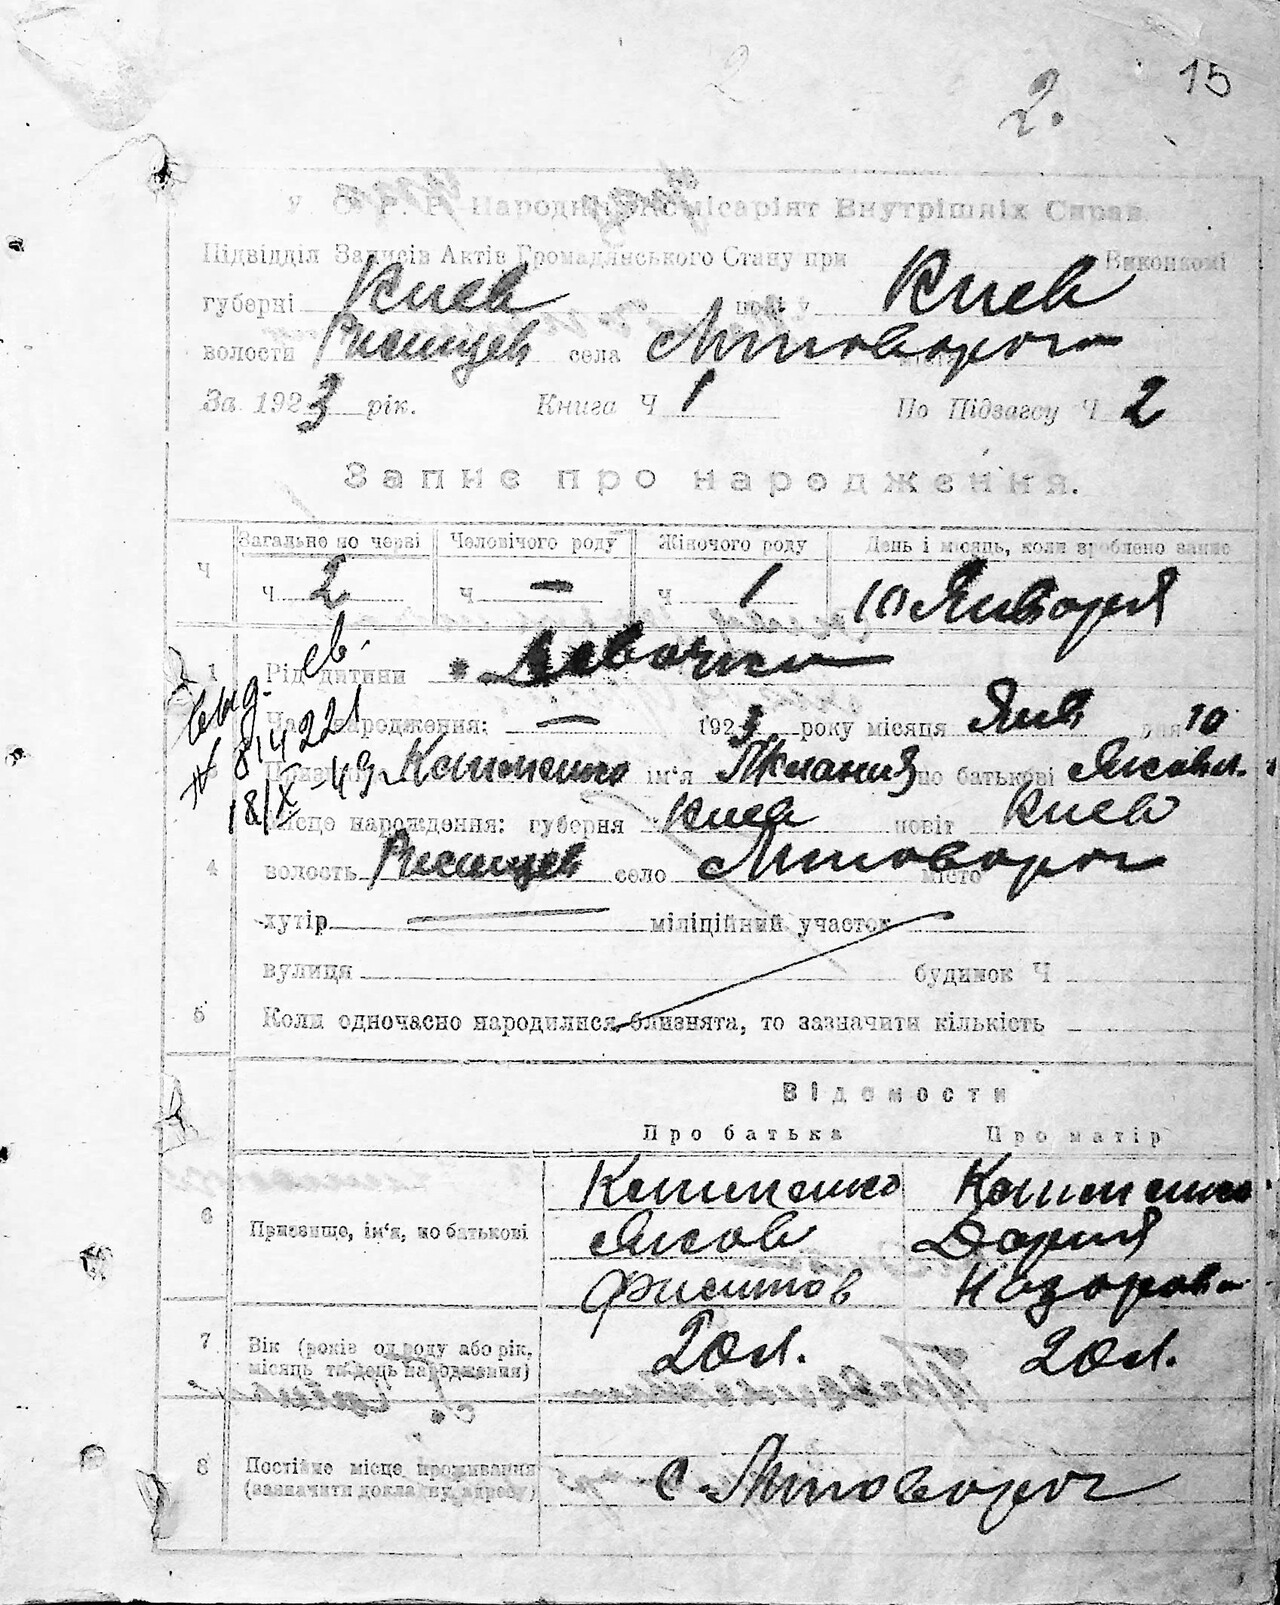 15
2.
У С Р. Р. Народний Комісаріят Внутрішніх Справ.
Підвідділ Записів Актів Громадянського Стану при Виконкомі
губерні Киев повіту Киев
волости села
За 1923 рік. Книга Ч 1 По Підзагсу Ч 2
Запис про народження.
Ч Загальне по черзі Чоловічого роду Жіночого роду День і місяць, коли зроблено запис
Ч 2 Ч — Ч 1 10 Января
св.
1 Рід дитини Девочка
выд.
Час народження: — 1923 року місяця Янв дня 10
№ 814221
3 Призвище ім'я по батькові Яковл.
18/X-49
Місце народження: губерня Киев повіт Киев
4 волость село місто
хутір міліційний участок
вулиця будинок Ч
5 Коли одночасно народилися близнята, то зазначити кількість
Відомости
Про батька Про матір
6 Призвище, ім'я, по батькові
Яков Дария
Назарова
7 Вік (років од роду або рік, місяць та день народження) 20 л. 20 л.
8 Постійне місце проживання
(зазначити докладну адресу) с.